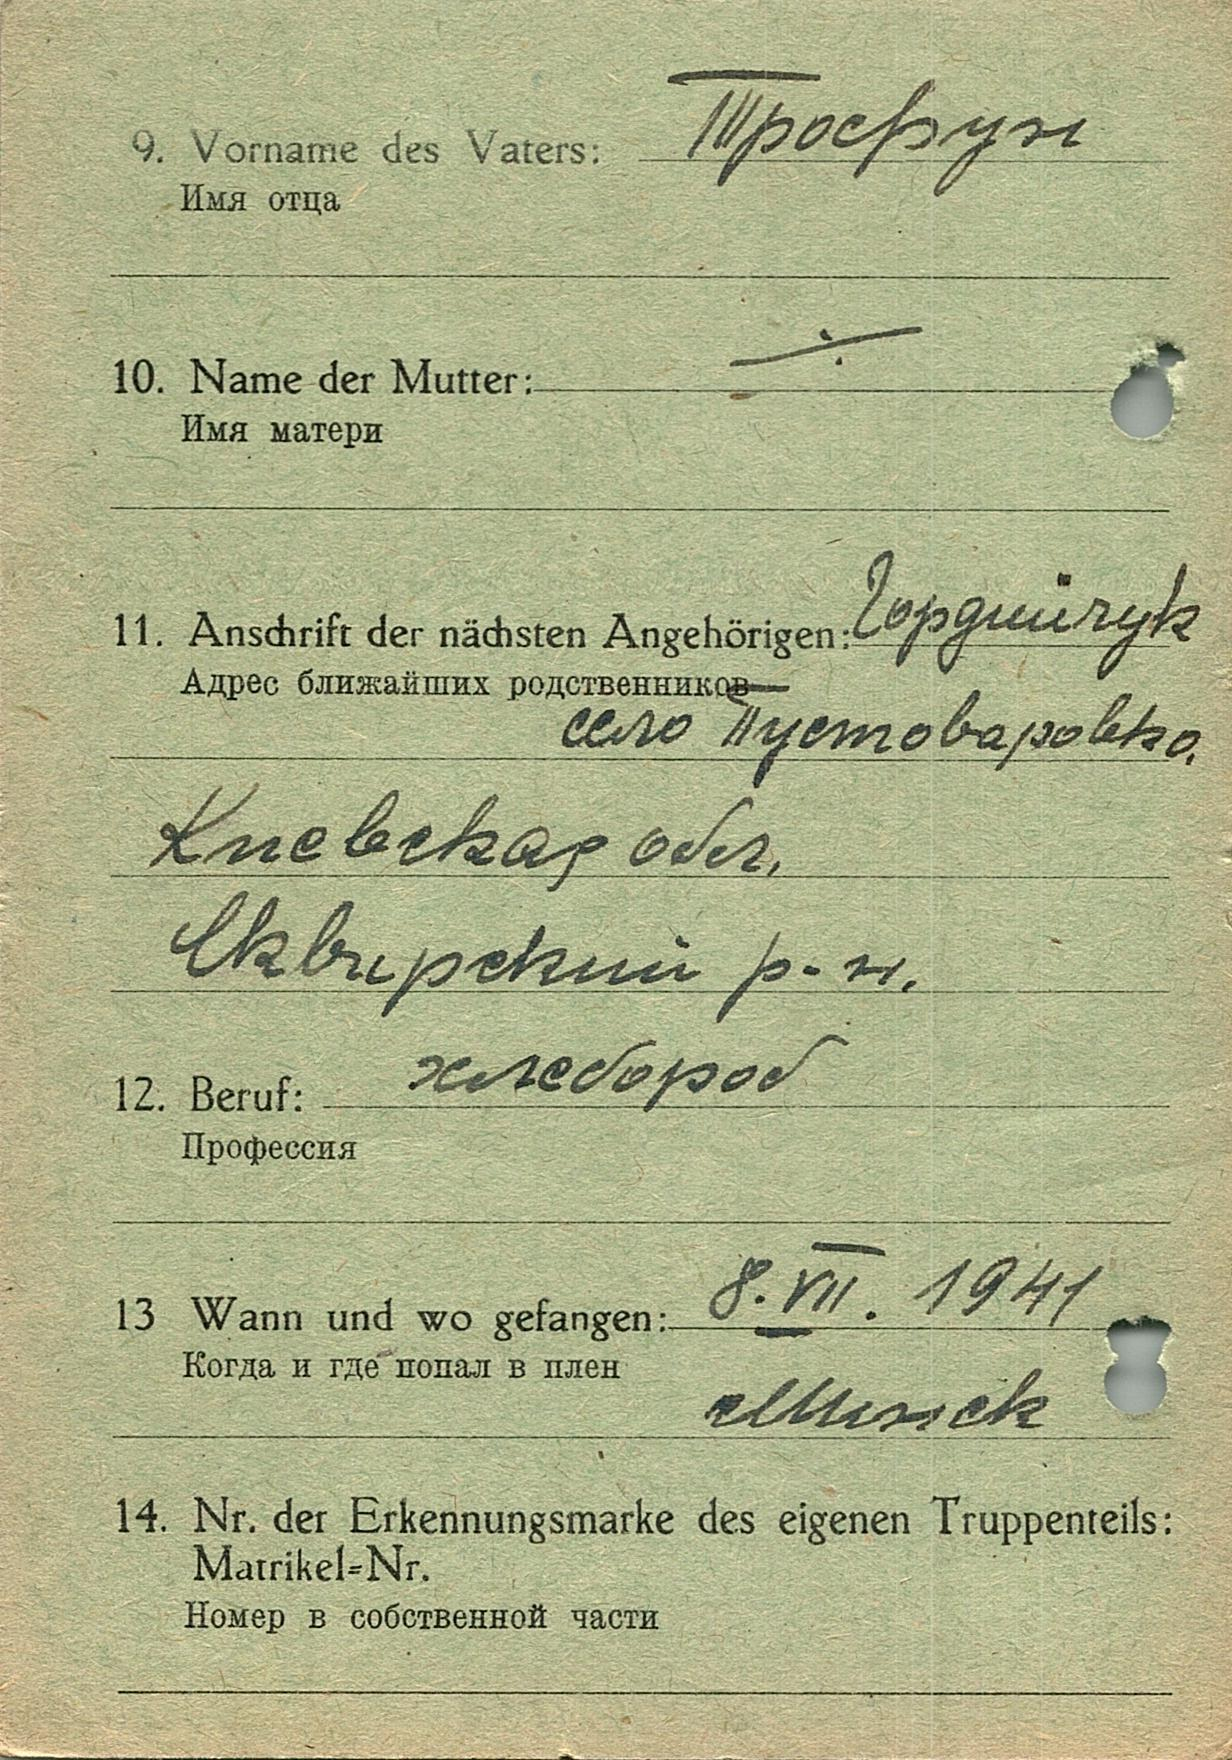 9. Vorname des Vaters: Трофун
Имя отца
10. Name der Mutter: ÷
Имя матери
11. Anschrift der nächsten Angehörigen: Гордийчук
Адрес ближайших родственников
село Пустоваровка,
Киевская обл,
Сквирский р-н.
12. Beruf: хлебороб
Профессия
13 Wann und wo gefangen: 8. VII. 1941
Когда и где попал в плен
Минск
14. Nr. der Erkennungsmarke des eigenen Truppenteils:
Matrikel=Nr.
Номер в собственной части